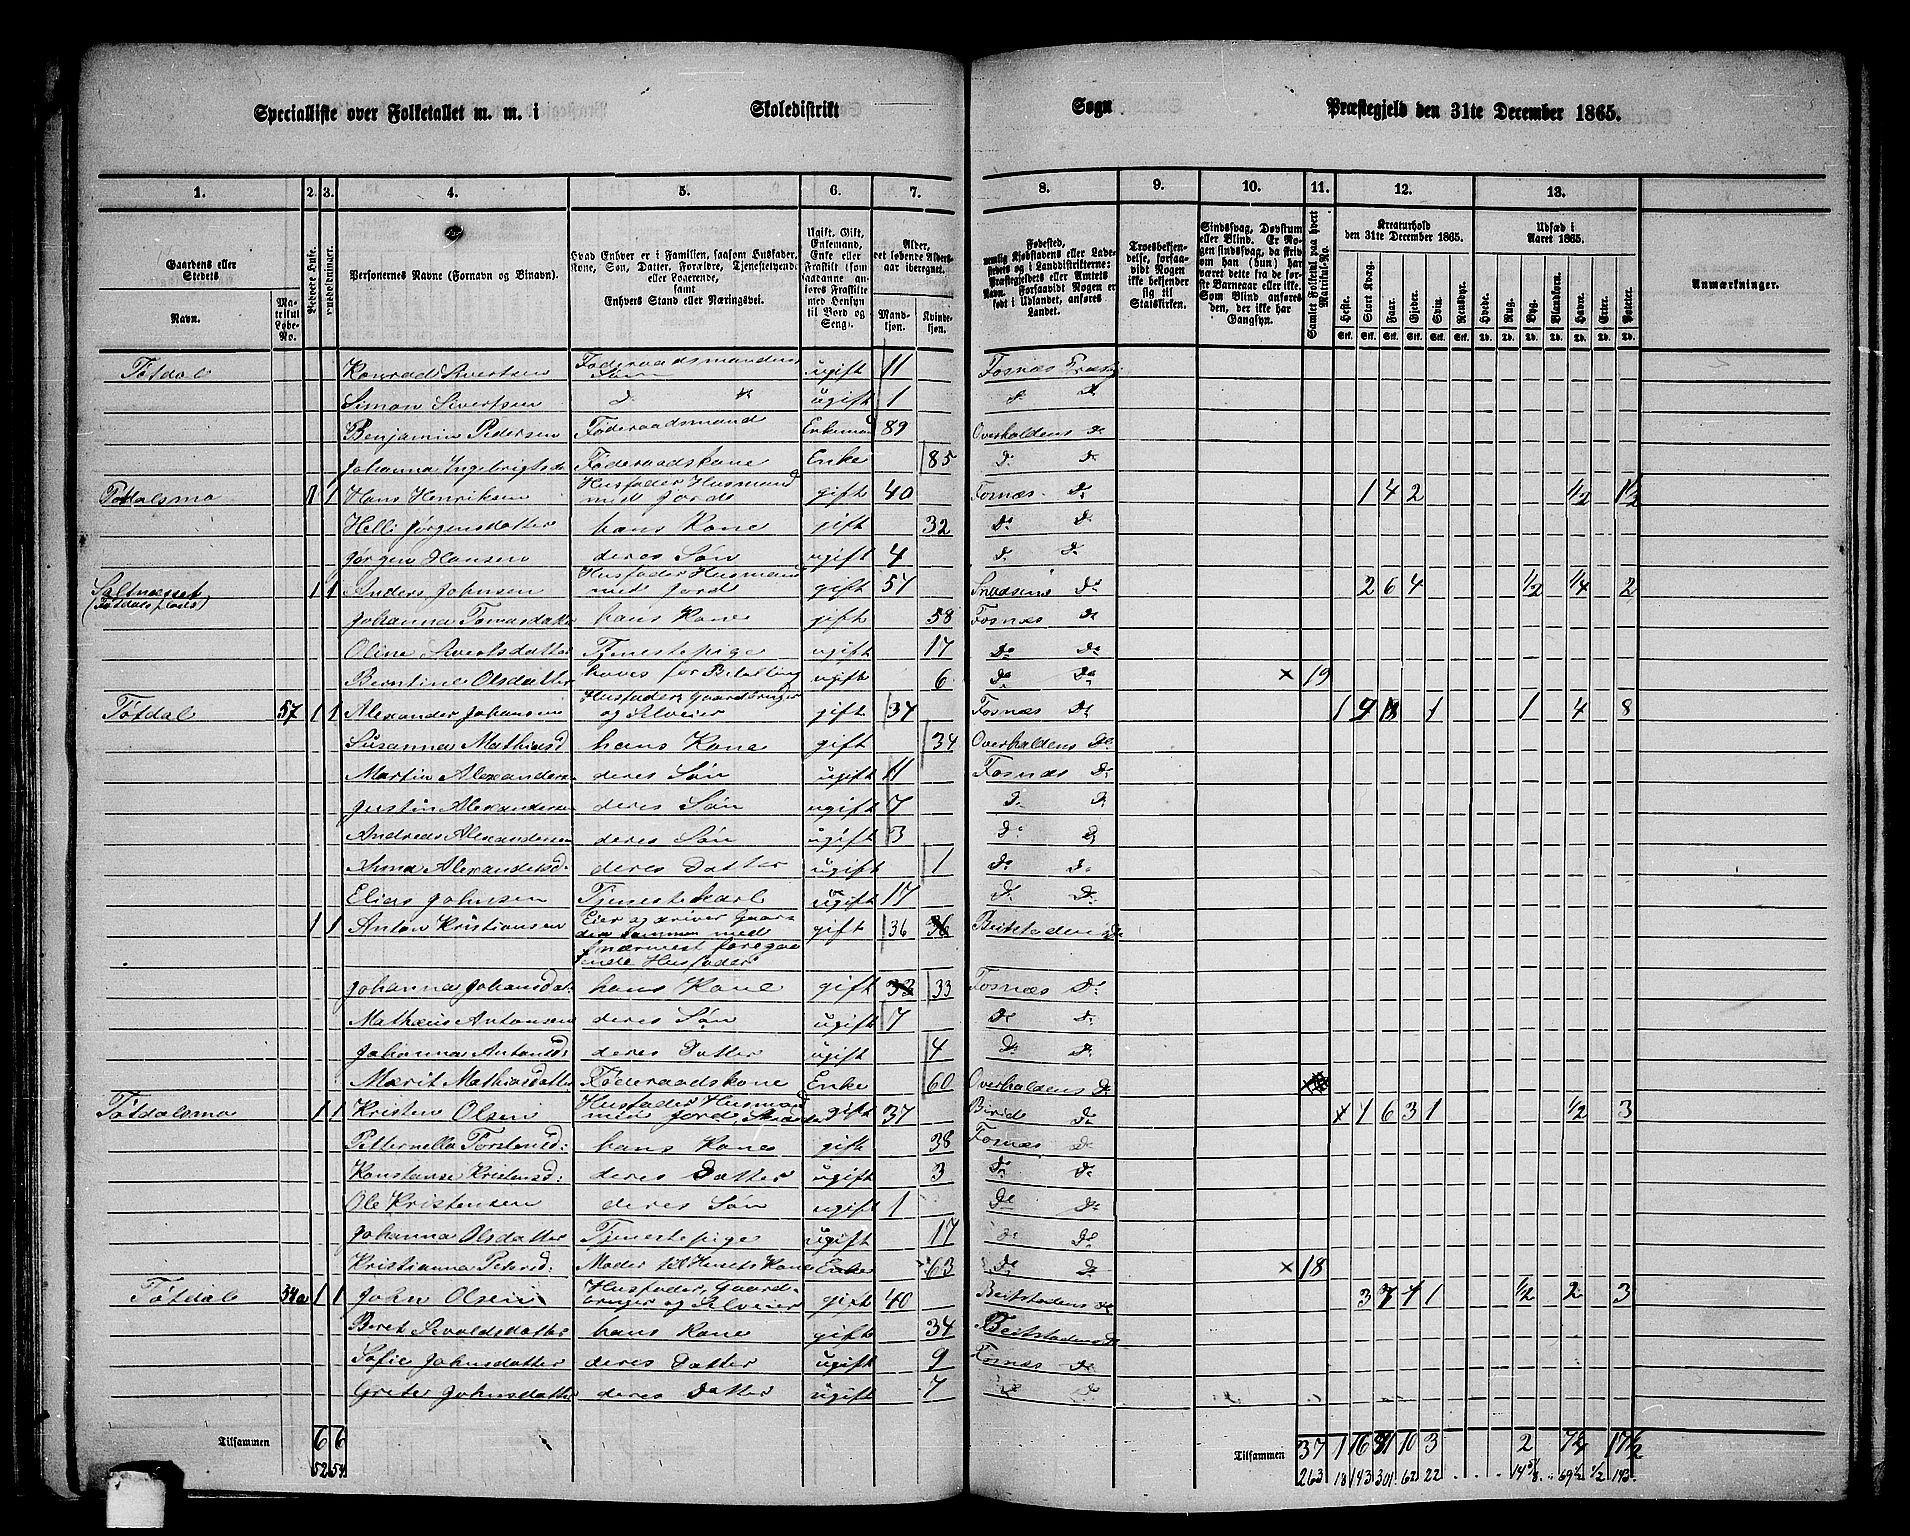 Specialliste over Folketallet m. m. i Skoledistrikt Sogn Præstegjeld den 31te December 1865.
1. 2. 3. 4. 5. 6. 7. 8. 9. 10. 11. 12. 13.
Gaardens eller Stedets
Navn. Matrikul Løbe-No.
Personernes Navne (Fornavn og Binavn).
Hvad Enhver er i Familien, saasom Husfader, Kone, Søn, Datter, Forældre, Tjenestetyende eller Logerende, samt Enhvers Stand eller Næringsvei.
Ugift, Gift, Enkemand, Enke eller Fraskilt
Alder, det løbende Aldersaar iberegnet.
Mandkjøn. Kvindekjøn.
Fødested,
Troesbekjendelse, forsaavidt Nogen ikke bekjender sig til Statskirken.
Sindssvag, Døvstum eller Blind.
Samlet Folketal paa hvert Matrikul-No.
Kreaturhold den 31te December 1865.
Udsæd i Aaret 1865.
Anmærkninger.
Heste. Stort Kvæg. Faar. Gjeder. Sviin. Rensdyr. Hvede. Rug. Byg. Blandkorn. Havre. Erter. Poteter.
Tøtdal Konrad Sivertsen Føderaadsmandens Søn ugift 11 Fosnæs Præstg
Simon Sivertsen d. ugift 1 d. D.
Benjamin Pedersen Føderaadsmand Enkemand 89 Overhaldens D.
Johanna Ingebrigtsd Føderaadskone Enke 85 D. D.
Tøtdalsmo 1 1 Hans Henriksen Husfader Husmand med Jord gift 40 Fosnæs D. 1 4 2 1/2 1 1/2
Helli Jørgensdatter hans Kone gift 32 D. D.
Jørgen Hansen deres Søn ugift 4 D. D.
Saltnæsset (Tøtdals plads) 1 1 Anders Johnsen Husfader Husmand med Jord gift 57 Snaasens Do 2 6 4 1/2 1/4 2
Johanna Tomasdatter hans Kone gift 58 Fosnæs D.
Oline Sivertsdatter Tjenestepige ugift 17 Do Do
Berntine Olsdatter haves for Betaling ugift 6 Do Do × 19
Tøtdal 57 1 1 Alexander Johansen Husfader, Gaardbruger og Selveier gift 37 Fosnæs D. 1 9 18 1 1 4 8
Susanna Mathiasd hans Kone gift 34 Overhaldens D.
Martin Alexandersen deres Søn ugift 11 Fosnæs D.
Justin Alexandersen deres Søn ugift 7 D. D.
Andreas Alexandersen deres Søn ugift 3 D. D.
Anna Alexandersd: deres Datter ugift 1 Do D.
Elias Johnsen Tjenestekarl ugift 17 D. D.
1 1 Anton Kristiansen Eier og driver Gaarden sammen med nærmest foregaaende Husfader gift 36 Beitstadens D.
Johanna Johansdat. hans Kone gift 33 Fosnæs D.
Mathæus Antonsen deres Søn ugift 7 D. D.
Johanna Antonsd: deres Datter ugift 4 D. D.
Marit Mathiasdatter Føderaadskone Enke 60 Overhaldens D.
Tøtdalsmo 1 1 Kristen Olsen Husfader Husmand med Jord, gift 37 Birids D. × 1 6 3 1 1/2 3
Petternella Torstensd: hans Kone gift 38 Fosnæs D.
Konstanse Kristensd: deres Datter ugift 3 D. D.
Ole Kristensen deres Søn ugift 1 D. D.
Johanna Olsdatter Tjenestepige ugift 17 d. D.
Kristianna Petersd: Moder til Husets Kone Enke 63 D. D. × 18
Tøtdal 54a 1 1 John Olsen Husfader, Gaardbruger og Selveier gift 40 Beitstadens D. 3 7 4 1 1/2 2 3
Beret Sivaldsdatter hans Kone gift 34 Beitstadens D.
Sofie Johnsdatter deres Datter ugift 9 Fosnæs D.
Greter Johnsdatter deres Datter ugift 7 D. D.
Tilsammen 6 6 Tilsammen 37 1 16 10 3 2 17 1/2
52 54 263 18 143 301 62 22 14 5/8 69 1/2 1/2 143